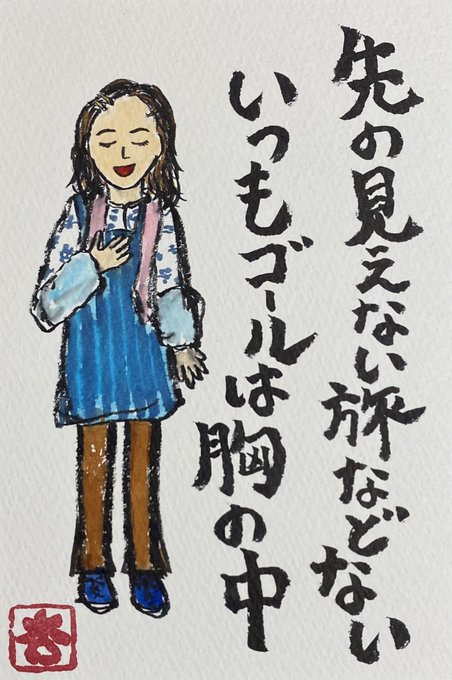 先の見えない旅などない
いつもゴールは胸の中